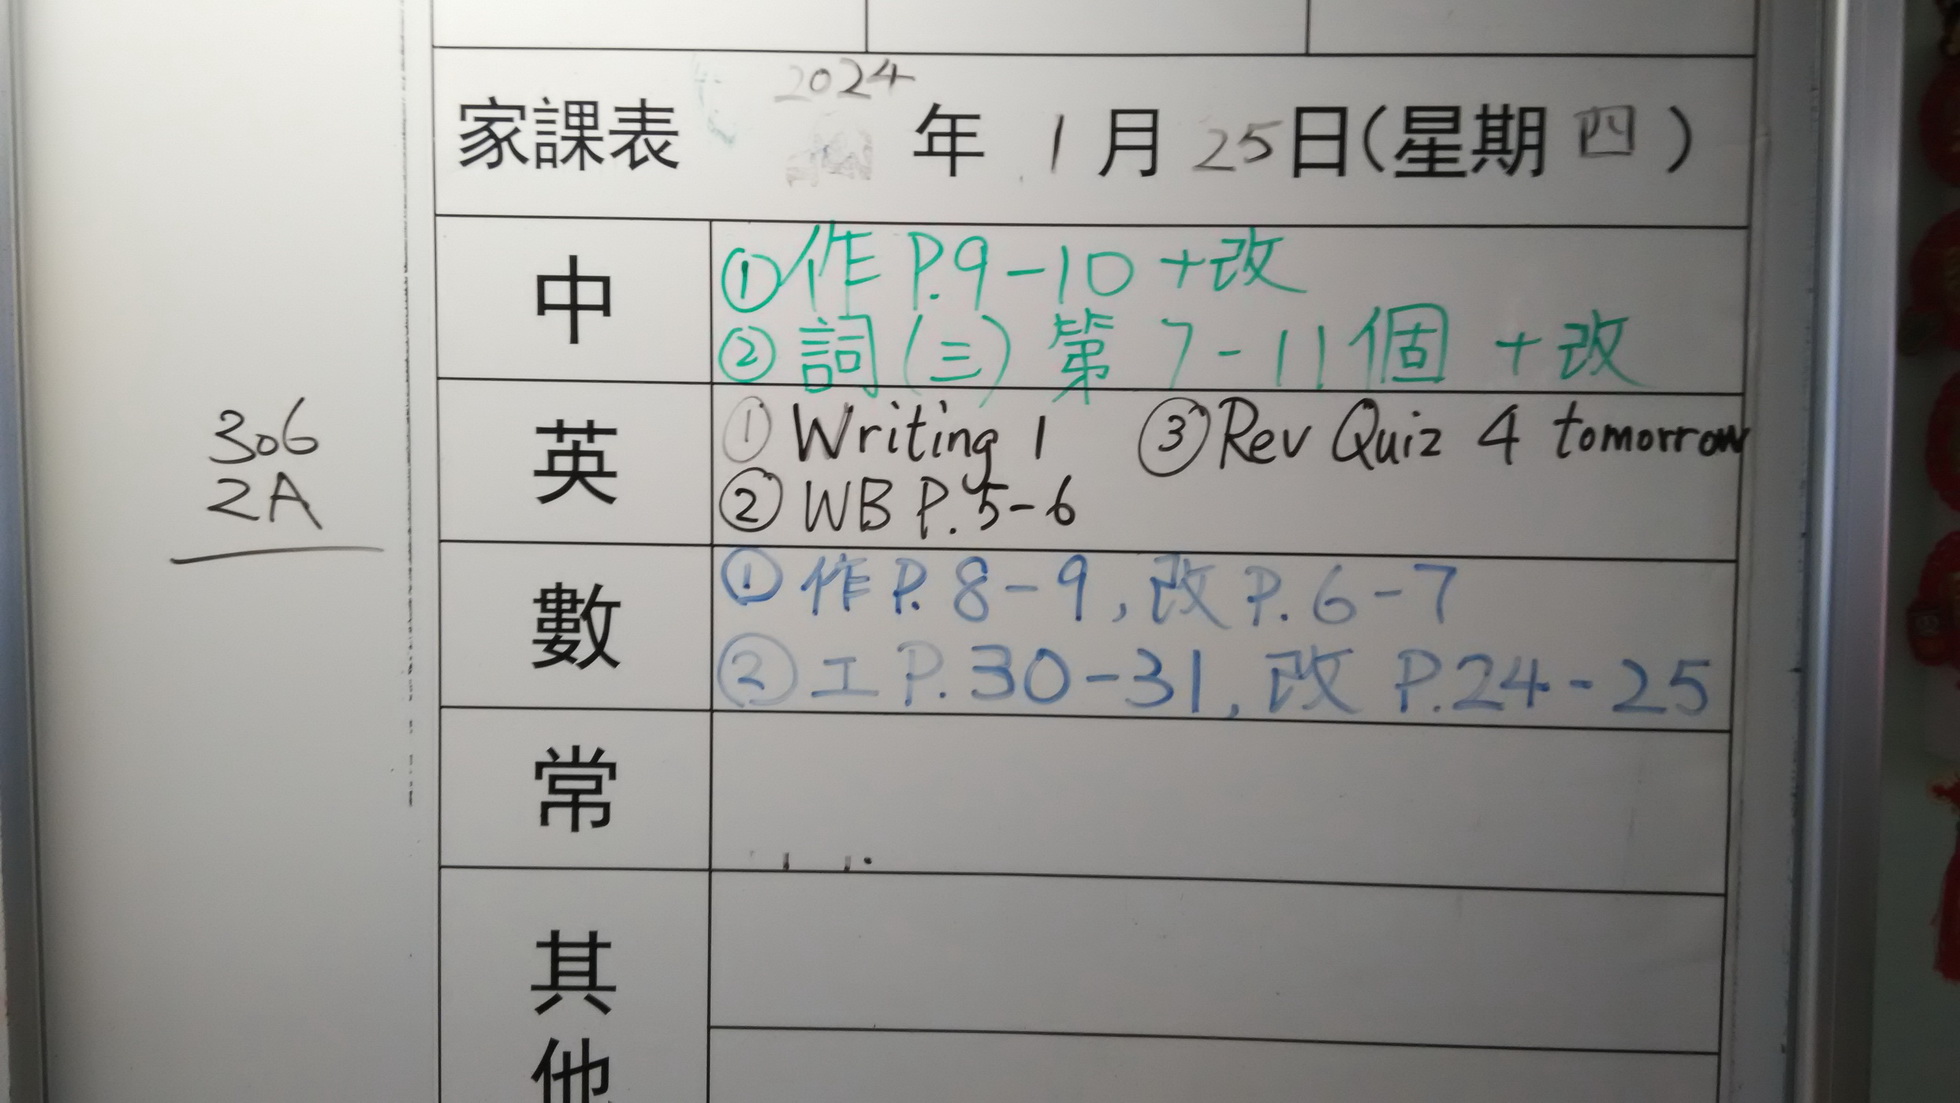 家課表 2024年 1月 25日(星期四)
中
①作 P.9-10 +改
②詞(三)第 7-11個 +改
306
2A
英
① Writing 1 ③ Rev Quiz 4 tomorrow
② WB P.5-6
數
①作P. 8-9, 改P. 6-7
②工P. 30-31, 改 P.24-25
常
其
他